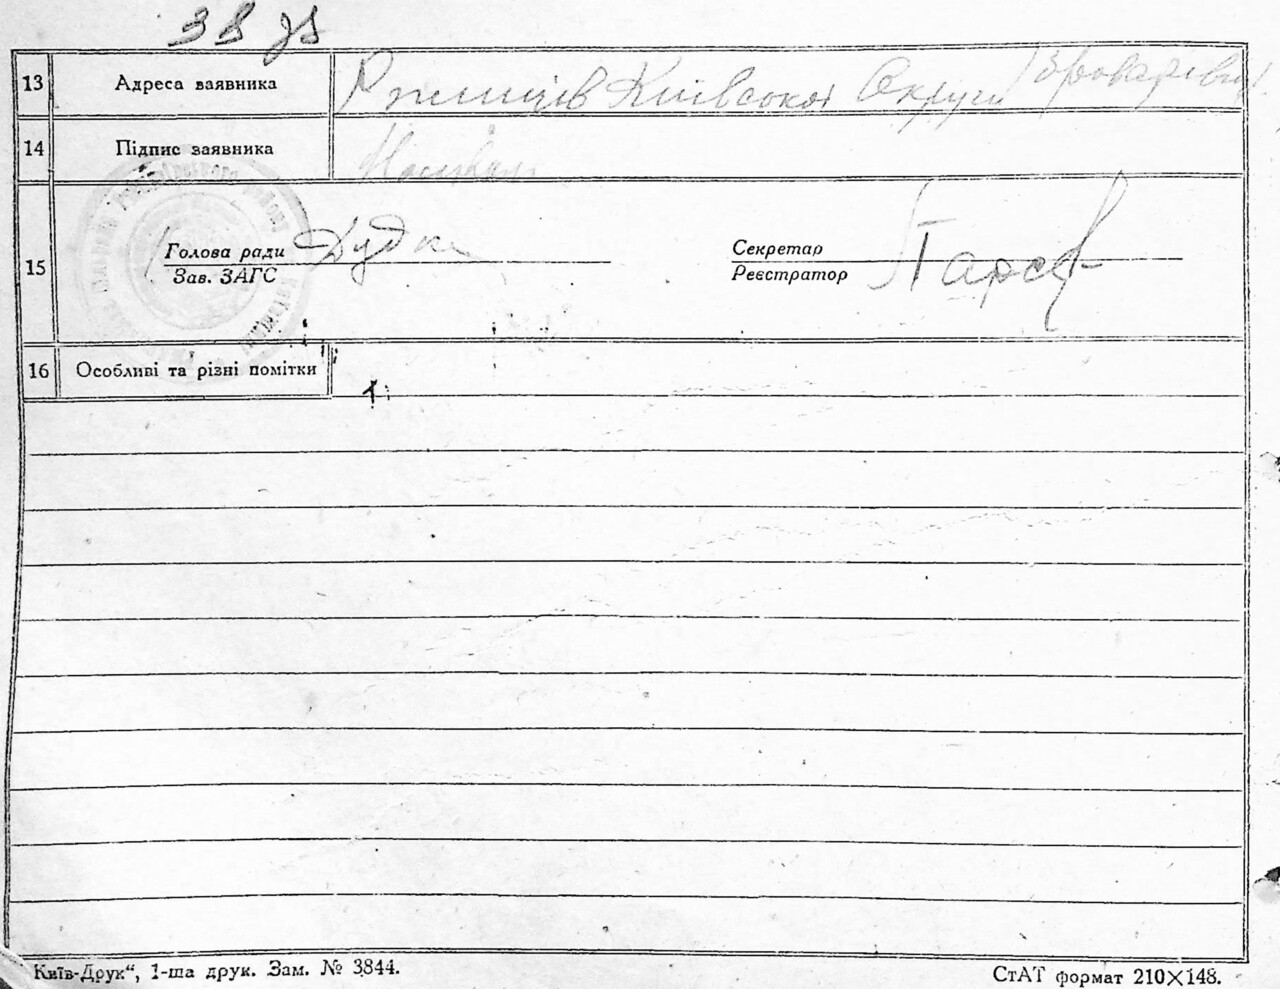 38 зв
13 Адреса заявника Рожнів Київської Округи Броварський р.
14 Підпис заявника
15 Голова ради Дудка Секретар
Зав. ЗАГС Реєстратор
16 Особливі та різні помітки
Київ-Друк“, 1-ша друк. Зам. № 3844. СтАТ формат 210×148.